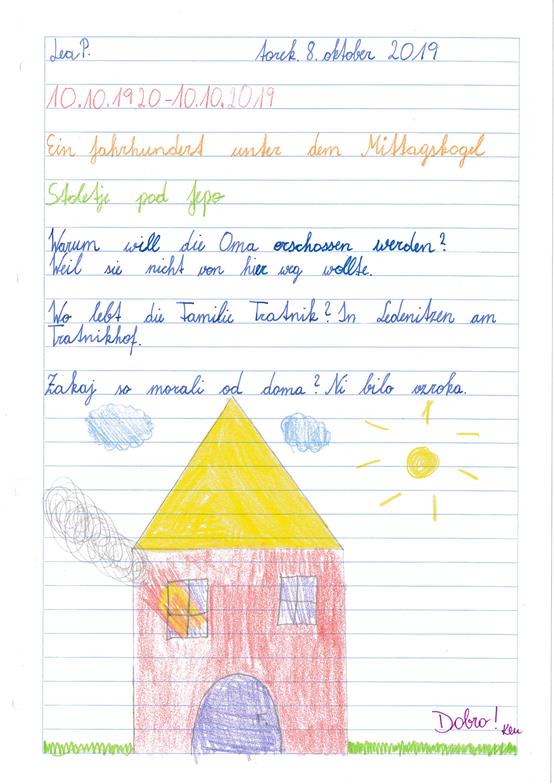 Lea P. torek, 8. oktober 2019
10.10.1920-10.10.2019
Ein Jahrhundert unter dem Mittagskogel
Stoletje pod Jepo
Warum will die Oma erschossen werden?
Weil sie nicht von hier weg wollte.
Wo lebt die Familie Tratnik? In Ledenitzen am
Tratnikhof.
Zakaj so morali od doma? Ni bilo vzroka.
Dobro!